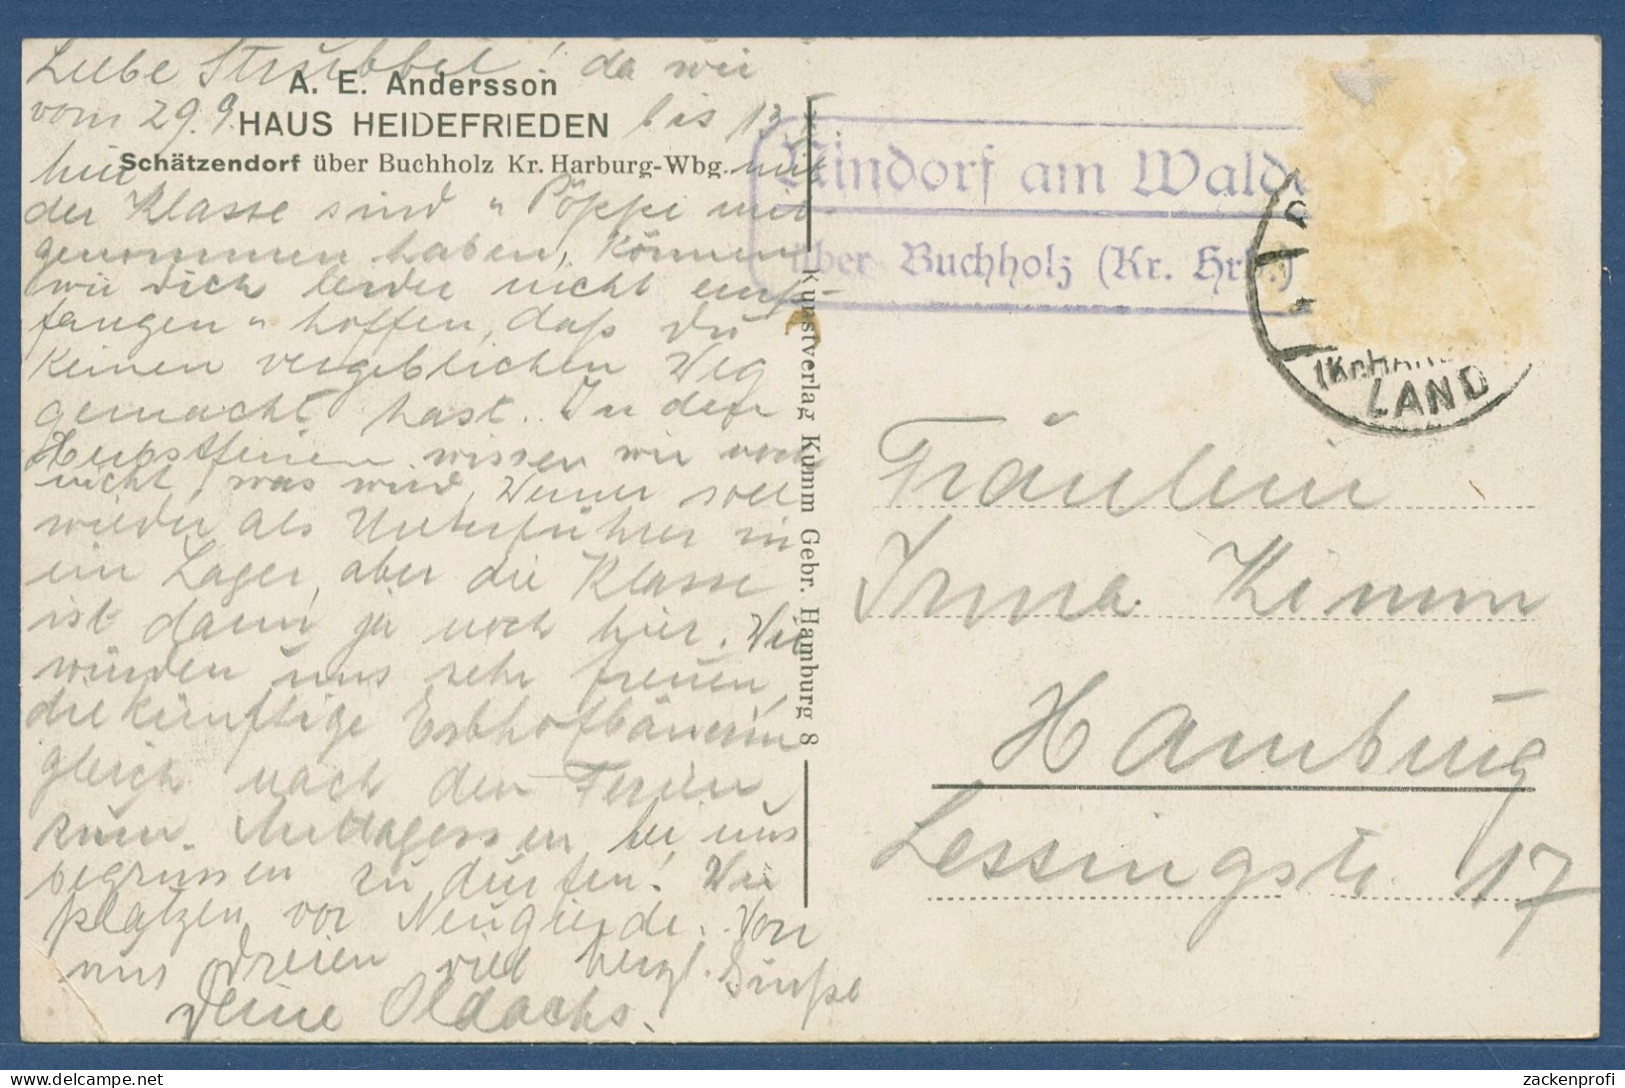 Liebe Strubbel! da wir
A. E. Andersson
vom 29.9. bis 13.
HAUS HEIDEFRIEDEN
Schätzendorf über Buchholz Kr. Harburg-Wbg.
hier mit
der Klasse sind u. Pöppi mit-
genommen haben, können
wir dich leider nicht emp-
fangen u. hoffen, daß du
keinen vergeblichen Weg
gemacht hast. In den
Herbstferien wissen wir noch
nicht, was wird, Werner soll
wieder als Unterführer in
ein Lager, aber die Klasse
ist dann ja noch hier. Wir
würden uns sehr freuen,
die künftige Erbhofbäuerin
gleich nach den Ferien
zum Mittagessen bei uns
begrüssen zu dürfen! Wir
platzen vor Neugierde. Von
uns dreien viel herzl. Grüße
Deine Oldachs.
Kunstverlag Kumm Gebr. Hamburg 8
Nindorf am Walde
über Buchholz (Kr. Hrb.)
(Kr. HAR
LAND
Fräulein
Irma Kimm
Hamburg
Lessingstr. 17
zackenprofi